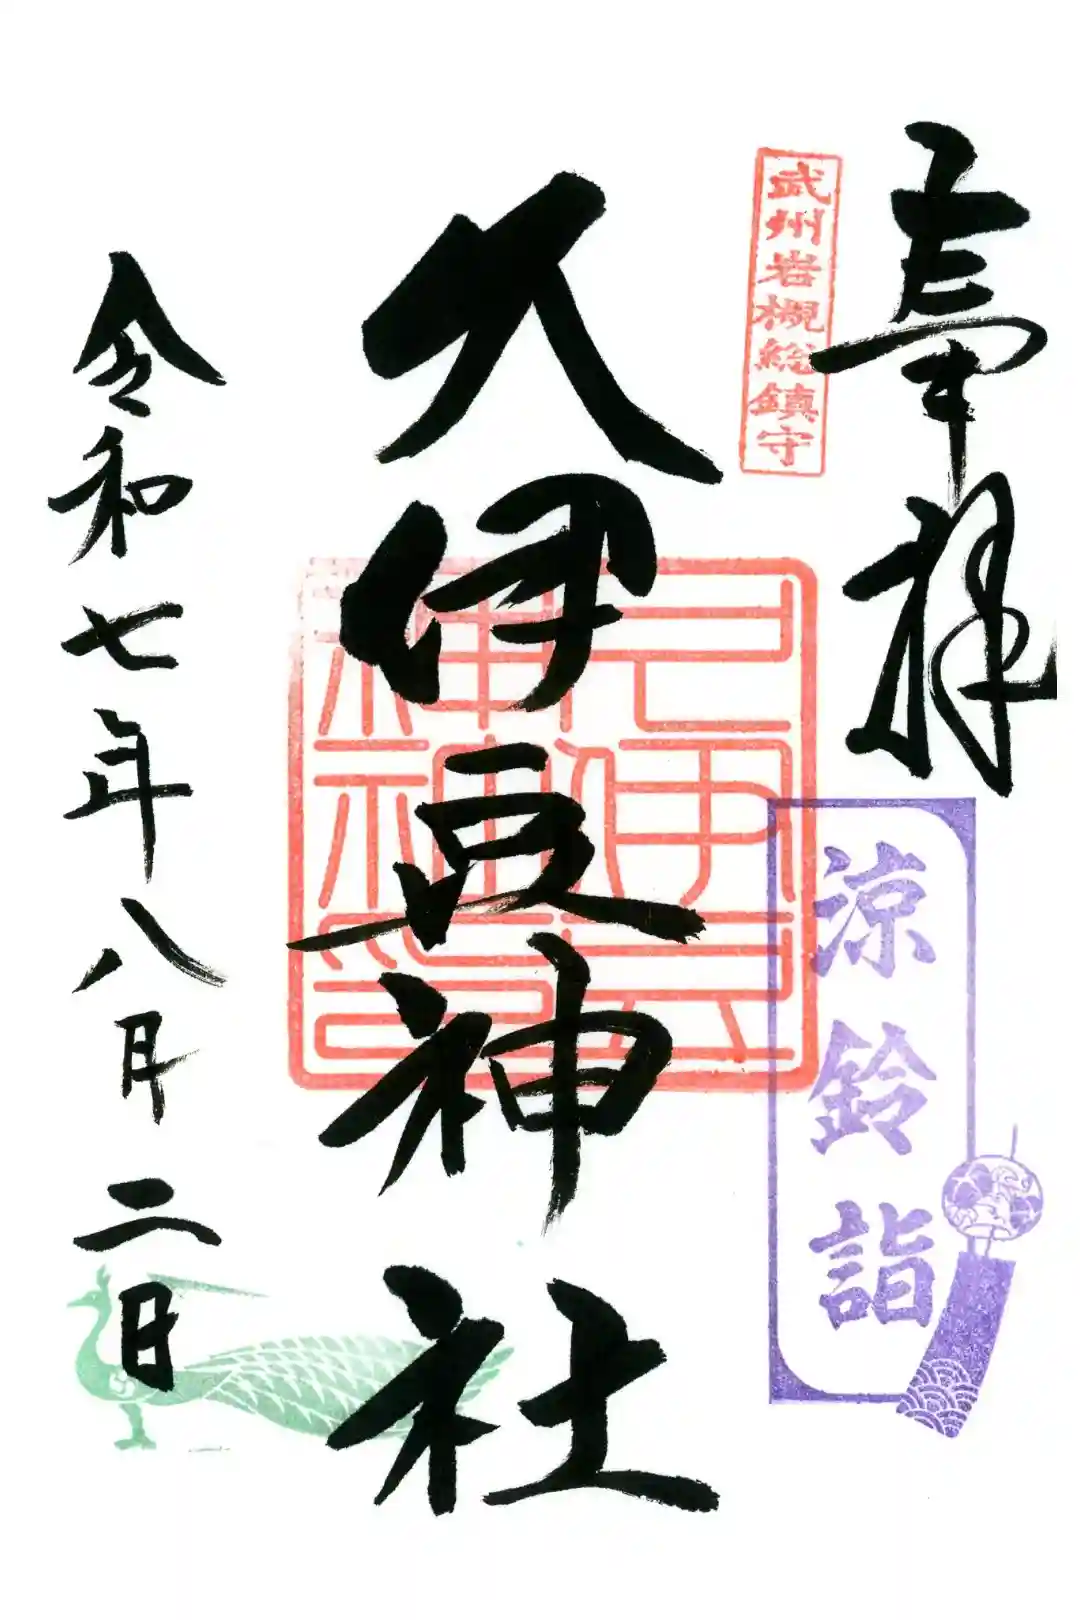 奉拝
武州岩槻総鎮守
涼鈴詣
久伊豆神社
久伊豆神社神印
令和七年八月二日